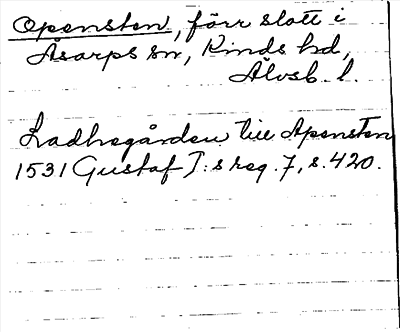 Opensten, förr slott i
Åsarps sn, Kinds hd,
Älvsb. l.
Ladhegården till Apensten
1531 Gustaf I:s reg. 7, s. 420.